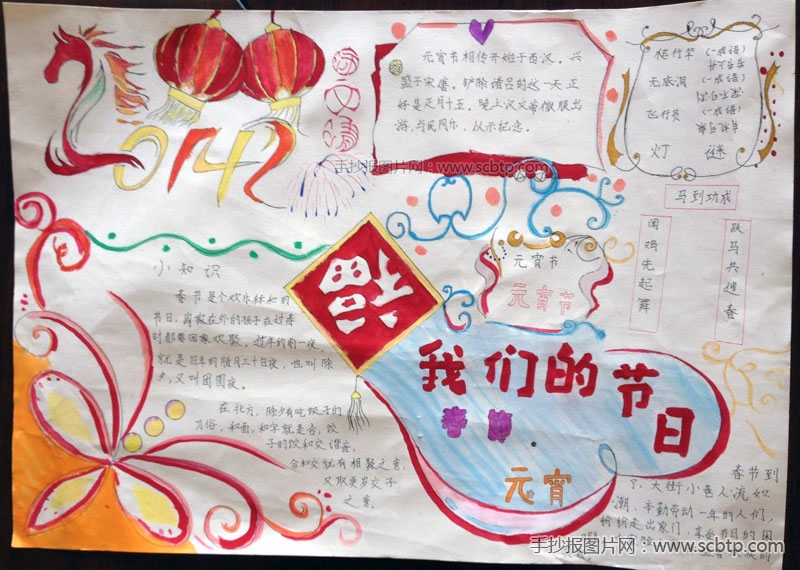 2014
元宵节相传开始于西汉，兴
盛于宋唐。铲除诸吕的这一天正
好是正月十五。晚上汉文帝微服出
游，与民同乐，以示纪念。
爬竹竿（一成语）
无底洞（一成语）
飞行员（一成语）
灯谜
手抄报图片网：www.scbtp.com
马到功成
闻鸡先起舞
跃马共迎春
小知识
春节是个欢乐祥和的
节日，离家在外的孩子在过春
时都要回家欢聚。过年的前一夜
就是旧年的腊月三十日夜，也叫除
夕，又叫团圆夜。
在北方，除夕有吃饺子的
习俗，和面，和字就是合，饺
子的饺和交谐音，
合和交就有相聚之意，
又取更岁交子
之意。
福
元宵节
元宵节
我们的节日
春节
元宵
春节到
了，大街小巷人流如
潮，辛勤劳动一年的人们，
纷纷走出家门，享受节日的
手抄报图片网：www.scbtp.com